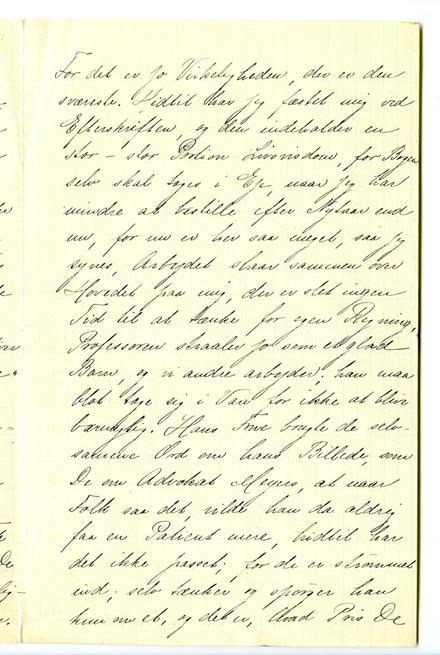 For det er jo Virkeligheden, der er den
sværeste. Hidtil har jeg fæstet mig ved
Efterskriften, og den indeholder en
stor – stor Portion Livsvisdom, for Bogen
selv skal tages i Eje, naar jeg har
mindre at bestille efter Nytaar end
nu, for nu er her saa meget, saa jeg
synes, Arbejdet slaar sammen over
Hovedet paa mig, der er slet ingen
Tid til at tænke for egen Regning,
Professoren straaler jo som et glad
Barn, og vi andre arbejder, han maa
blot tage sig i Van for ikke at blive
barnagtig. Hans Frue brugte de selv-
samme Ord om hans Billede, som
De om Advokat Meyers, at naar
Folk saa det, vilde han da aldrig
faa en Patient mere, hidtil har
det ikke passet; for de er strømmet
ind; selv tænker og spørger han
kun om et, og det er, hvad Pris De